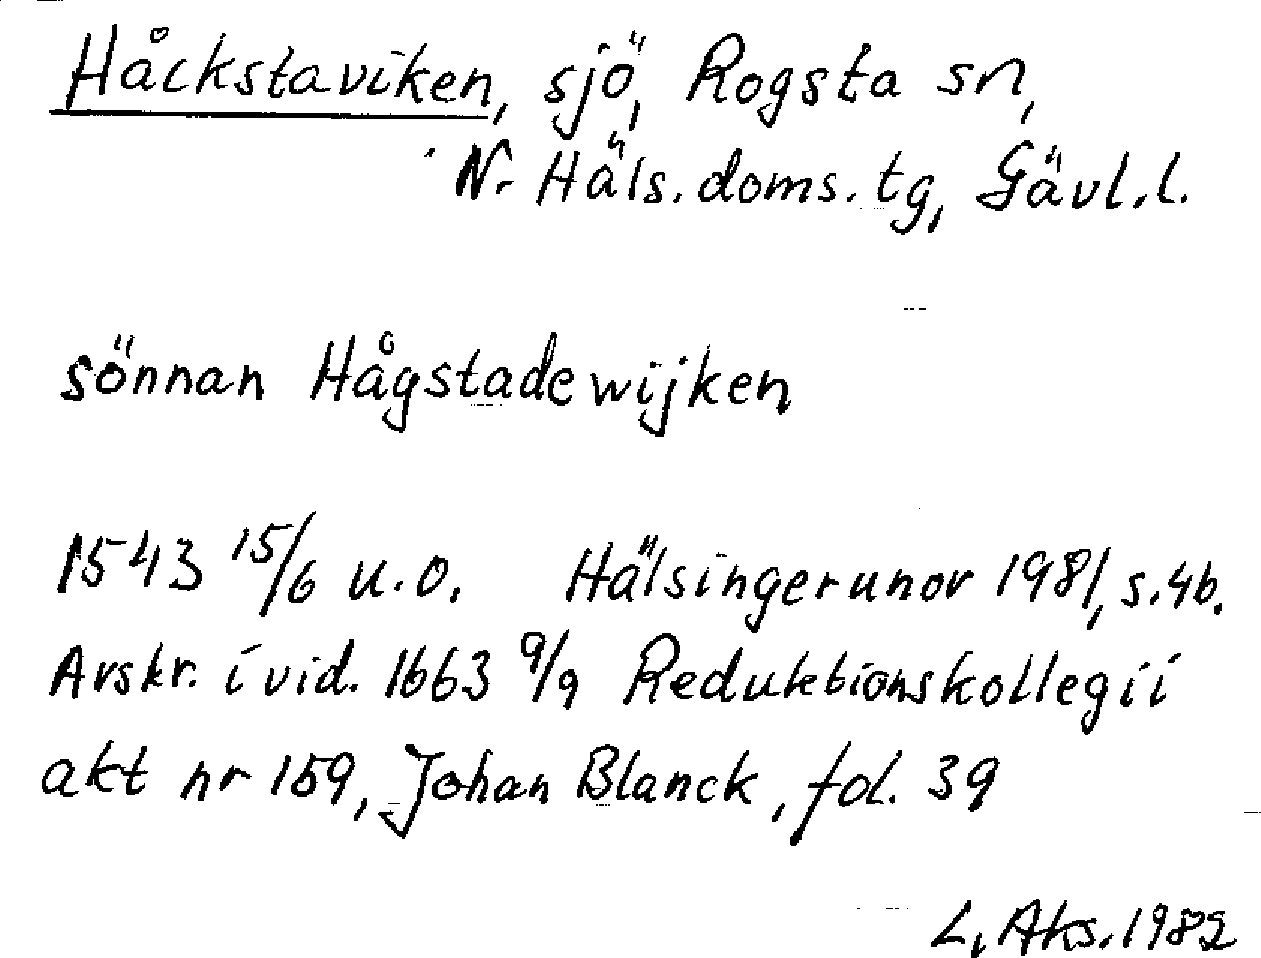 Håckstaviken, sjö, Rogsta sn,
N. Häls. doms. tg, Gävl. l.
sönnan Hågstadewijken
1543 15/6 u.o. Hälsingerunor 1981, s. 46.
Avskr. i vid. 1663 9/9 Reduktionskollegii
akt nr 159, Johan Blanck, fol. 39
L, Aks. 1982